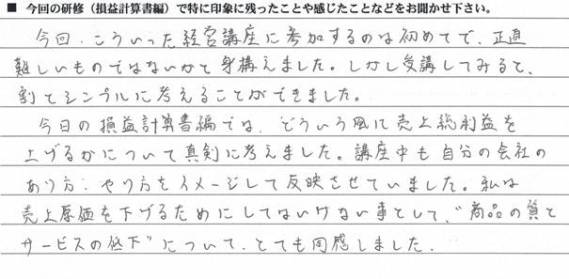 ■ 今回の研修（損益計算書編）で特に印象に残ったことや感じたことなどをお聞かせ下さい。
今回、こういった経営講座に参加するのは初めてで、正直
難しいものではないかと身構えました。しかし受講してみると、
割とシンプルに考えることができました。
今日の損益計算書編では、どういう風に売上総利益を
上げるかについて真剣に考えました。講座中も自分の会社の
あり方、やり方をイメージして反映させていました。私は
売上原価を下げるためにしてはいけない事として、"商品の質と
サービスの低下"について、とても同感しました。